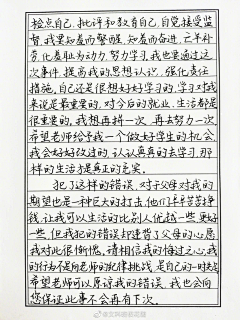 检点自己,批评和教育自己,自觉接受监
督。我要知羞而警醒,知羞而奋进,亡羊补
牢,化羞耻为动力,努力学习。我也要通过这
次事件,提高我的思想认识,强化责任
措施。自己还是很想好好学的,学习对我
来说是最重要的,对今后的就业,生活都是
很重要的。我想再拼一次,再去努力一次
希望老师给予我一个做好学生的机会,
我会好好改过的,认认真真的去学习,那
样的生活才是真正的充实。
犯了这样的错误,对于父母对我的
期望也是一种巨大的打击,他们辛辛苦苦挣
钱,让我可以生活的比别人优越一些,更好一
些,但我犯的错误却违背了父母的心愿
我对此很惭愧。请相信我的悔过之心,我
的行为不是向老师的纪律挑战,是自己的一时失足
希望老师可以原谅我的错误,我也会向
您保证此事不会再有下次。